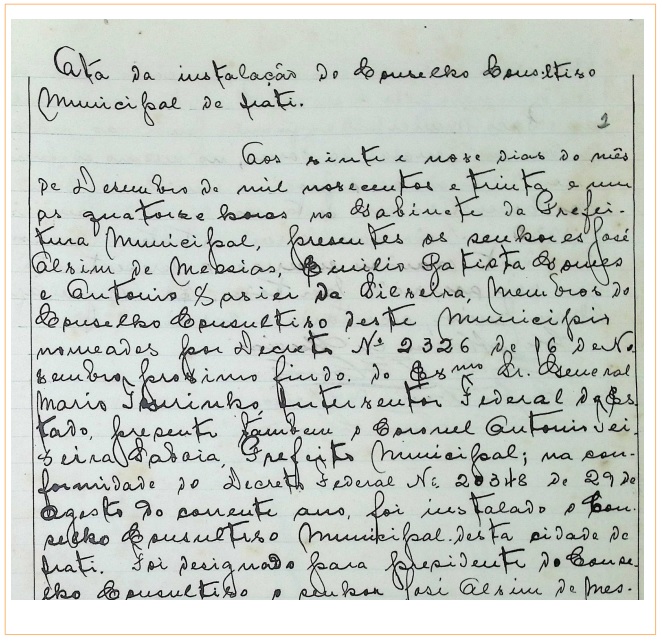 Acta da installação do Conselho Consultivo
Municipal de Iraty.
1
Aos vinte e nove dias do mês
de Dezembro de mil novecentos e trinta e um
as quatorze horas no Gabinete da Prefei-
tura Municipal, presentes os senhores José
Alvim de Messias, Emilio Batista Gomes
e Antonio Xavier da Silveira, Membros do
Conselho Consultivo deste Municipio
nomeados por Decreto Nº 2326 de 16 de No-
vembro, proximo findo, do Exmo Sr. General
Mario Tourinho, Interventor Federal do Es-
tado, presente tambem o Coronel Antonio Tei-
xeira Saboia, Prefeito Municipal; na con-
formidade do Decreto Federal Nº 20348 de 29 de
Agosto do corrente ano, foi instalado o Con-
selho Consultivo Municipal desta cidade de
Irati. Foi designado para presidente do Conse-
lho Consultivo o senhor José Alvim de Mes-